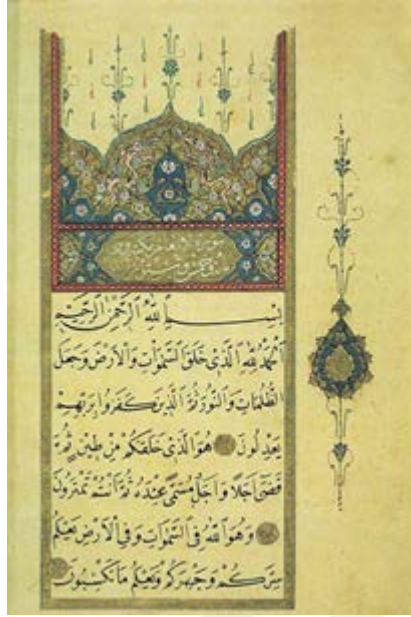 بِسْمِ اللّٰهِ الرَّحْمٰنِ الرَّحِيمِ
اَلْحَمْدُ لِلّٰهِ الَّذِي خَلَقَ السَّمٰوَاتِ وَالْاَرْضَ وَجَعَلَ
الظُّلُمَاتِ وَالنُّورَ ثُمَّ الَّذِينَ كَفَرُوا بِرَبِّهِمْ
يَعْدِلُونَ هُوَ الَّذِي خَلَقَكُمْ مِنْ طِينٍ ثُمَّ
قَضٰى اَجَلًا وَاَجَلٌ مُسَمًّى عِنْدَهُ ثُمَّ اَنْتُمْ تَمْتَرُونَ
وَهُوَ اللّٰهُ فِي السَّمٰوَاتِ وَفِي الْاَرْضِ يَعْلَمُ
سِرَّكُمْ وَجَهْرَكُمْ وَيَعْلَمُ مَا تَكْسِبُونَ